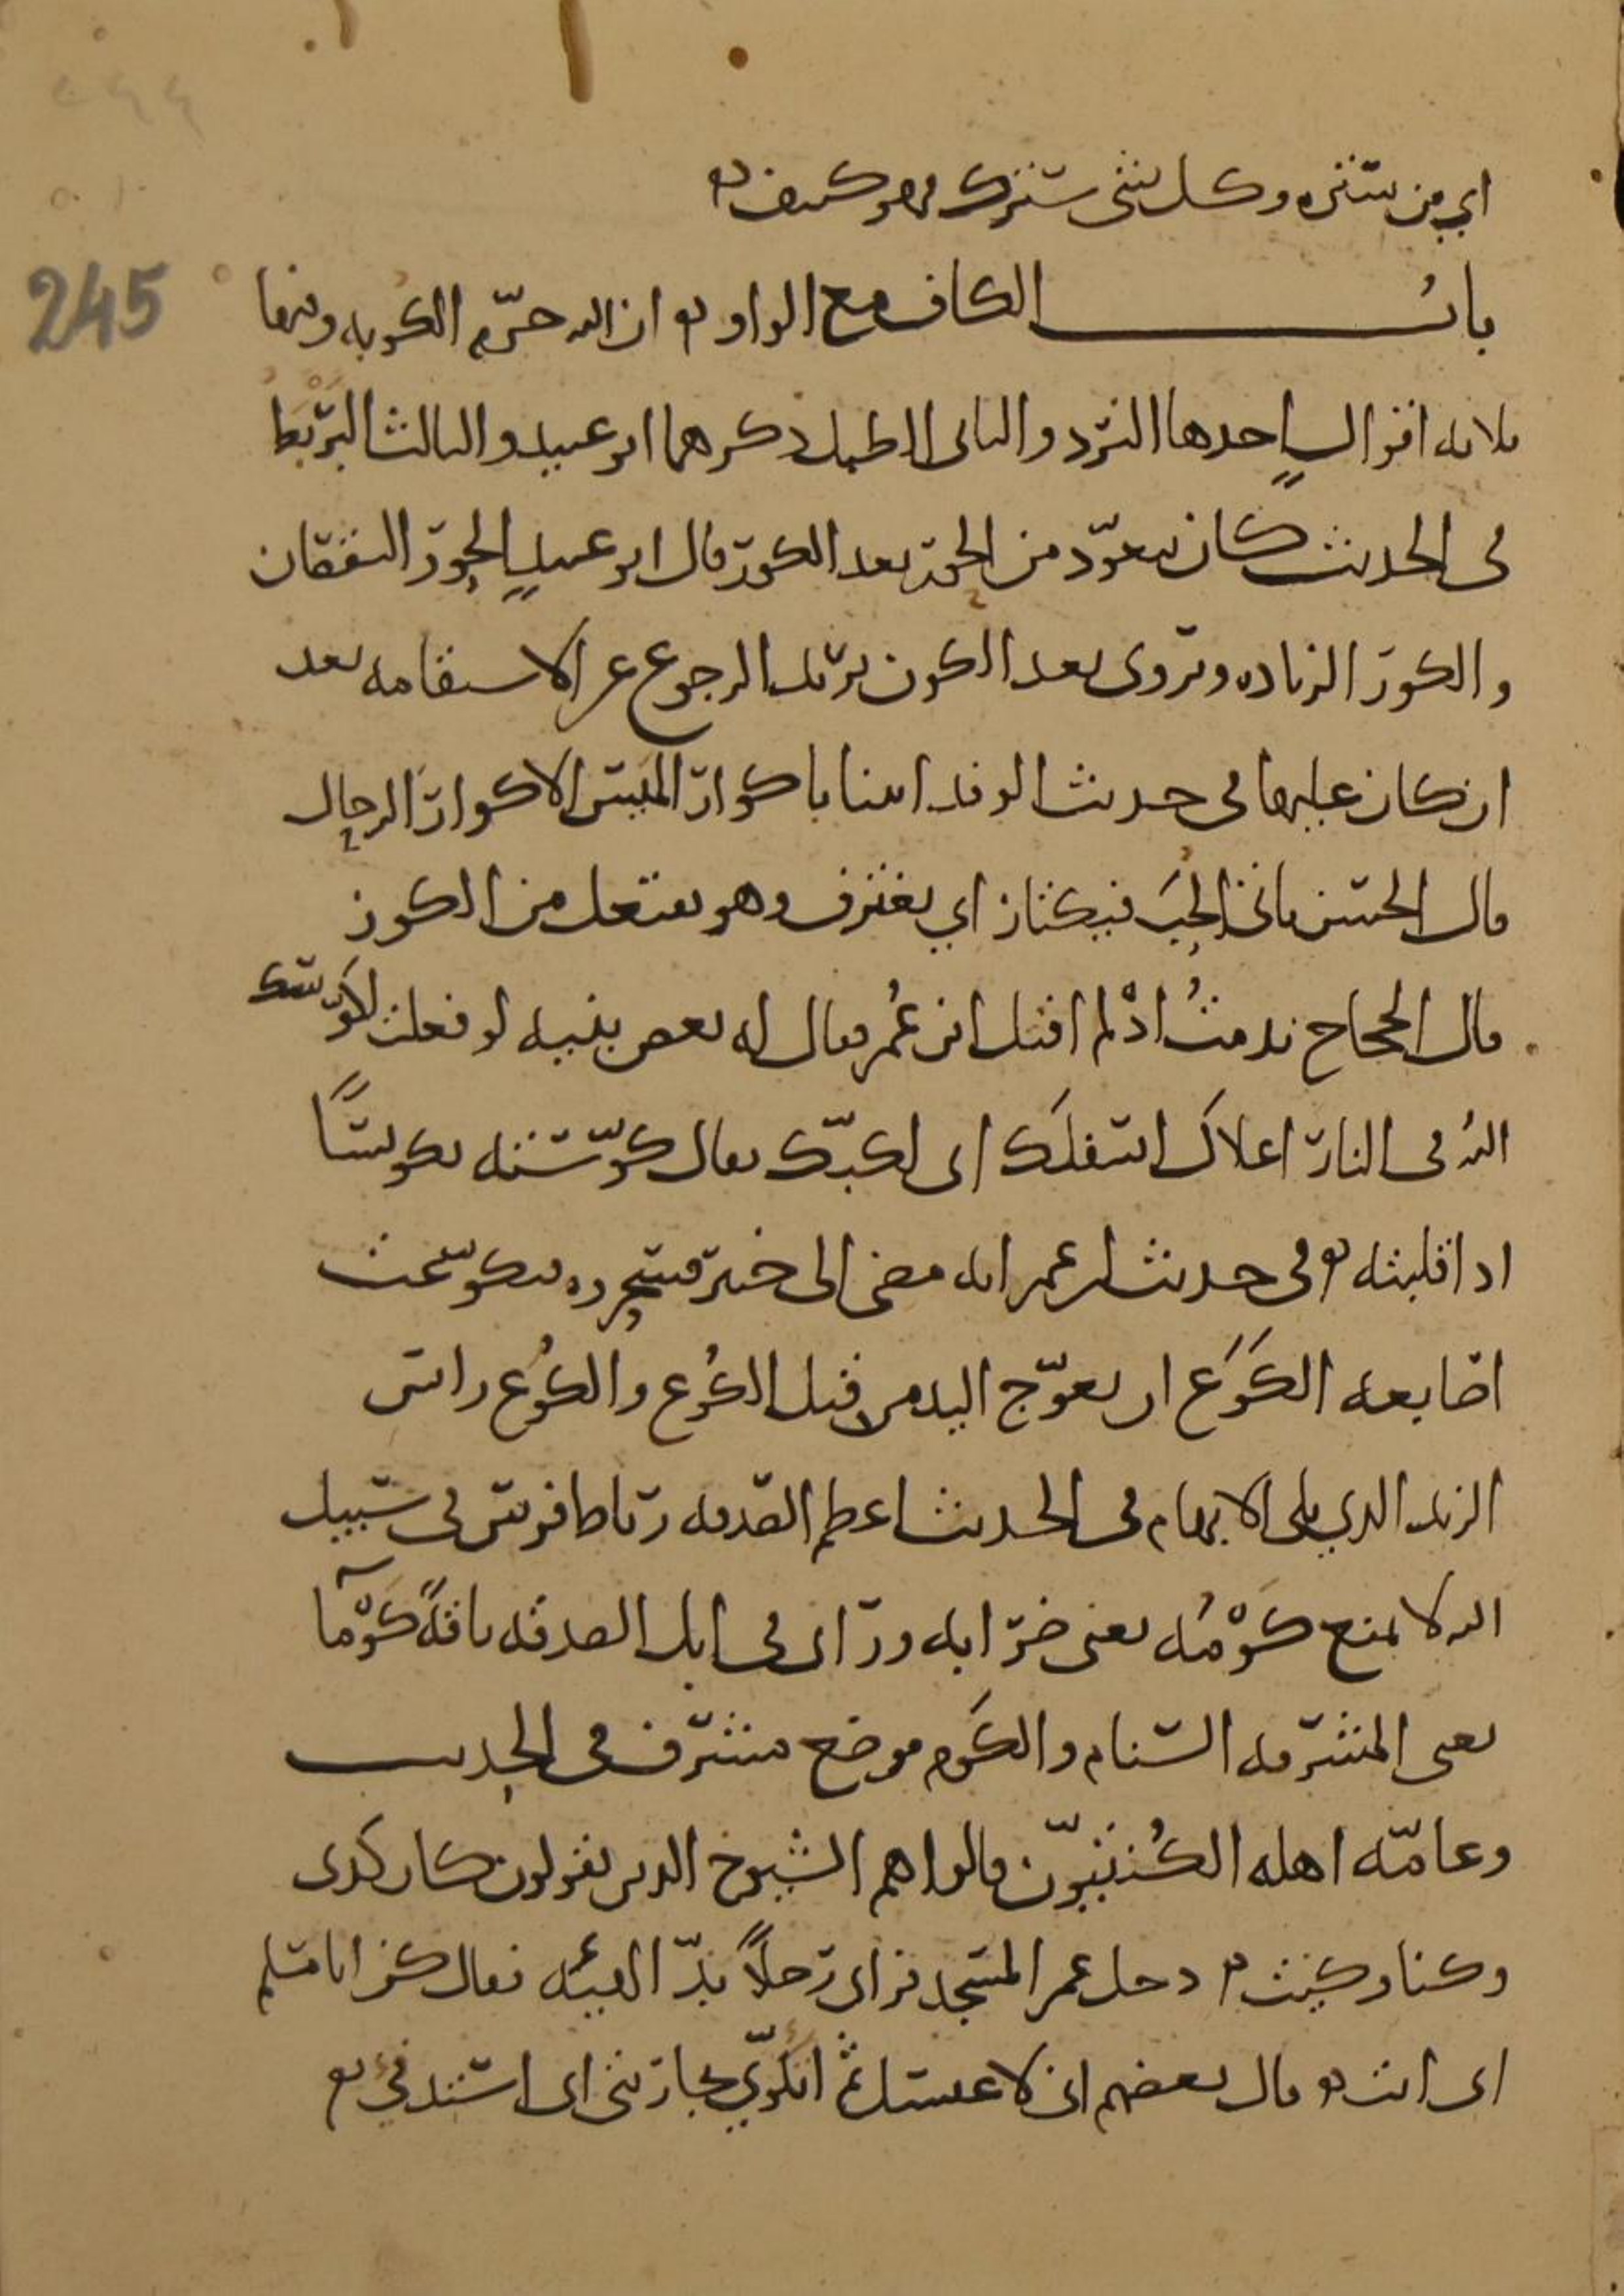 اي من ستره وكل شي سترك فهو كنيف
245
باب الكاف مع الواو ان الله حرّم الكوبه وفيها
ثلاثه اقوال احدها النرد والثاني الطبل ذكرهما ابو عبيد والثالث البَرْبَط
في الحديث كان يتعوّذ من الحور بعد الكور قال ابو عبيد الحور النقصان
والكور الزياده ويروى بعد الكون يريد الرجوع عن الاستقامه بعد
ان كان عليها في حديث الوفد اتينا باكوار الميس الاكوار الرحال
قال الحسن ياتي الحِبَ فيكتاز اي يغترف وهو يفتعل من الكوز
قال الحجاج ندمتُ اذْ لم اقتل ابن عُمر فقال له بعض بنيه لو فعلت لكوّسك
الله في النار اعلاك اسفلك اي لكبّك يقال كوّسته تكويسًا
اذا قلبته وفي حديث ابن عمر انه مضى الى خيبر فسحروه فتكوّعت
اصابعه الكَوَع ان يعوّج اليد من قبل الكُوع والكُوع راس
الزند الذي يلي الابهام في الحديث اعظم الصدقه رباط فرس في سبيل
الله لا يمنع كَوْمُه يعني ضرابه وراى في ابل الصدقه ناقةً كَوْمآ
يعني المشرفه السنام والكَوم موضع مشرف في الحديث
وعامّه اهله الكُنتيّون قالوا هم الشيوخ الذين يقولون كان كذى
وكنا وكنت دخل عمر المسجد فراى رجلًا بذّ الهيئه فقال كن ابا مسلم
اى انت وقال بعضهم اني لاغتسل ثم اتكوّي بجاريتي اى استدفئ